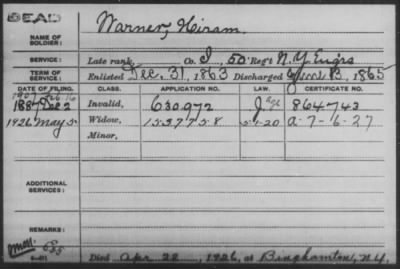 DEAD
NAME OF SOLDIER: Warner, Hiram.
SERVICE: Late rank, Co. I, 50 Reg't N.Y. Eng'rs
TERM OF SERVICE: Enlisted Dec. 31, 1863 Discharged June 13, 1865
DATE OF FILING. CLASS. APPLICATION NO. LAW. CERTIFICATE NO.
1907
1887 Dec 2 Invalid, 630972 J 864743
1926 May 5 Widow, 1537758 5-1-20 A-7-6-27
Minor,
ADDITIONAL SERVICES:
REMARKS:
Died Apr 22, 1926, at Binghamton, N.Y.